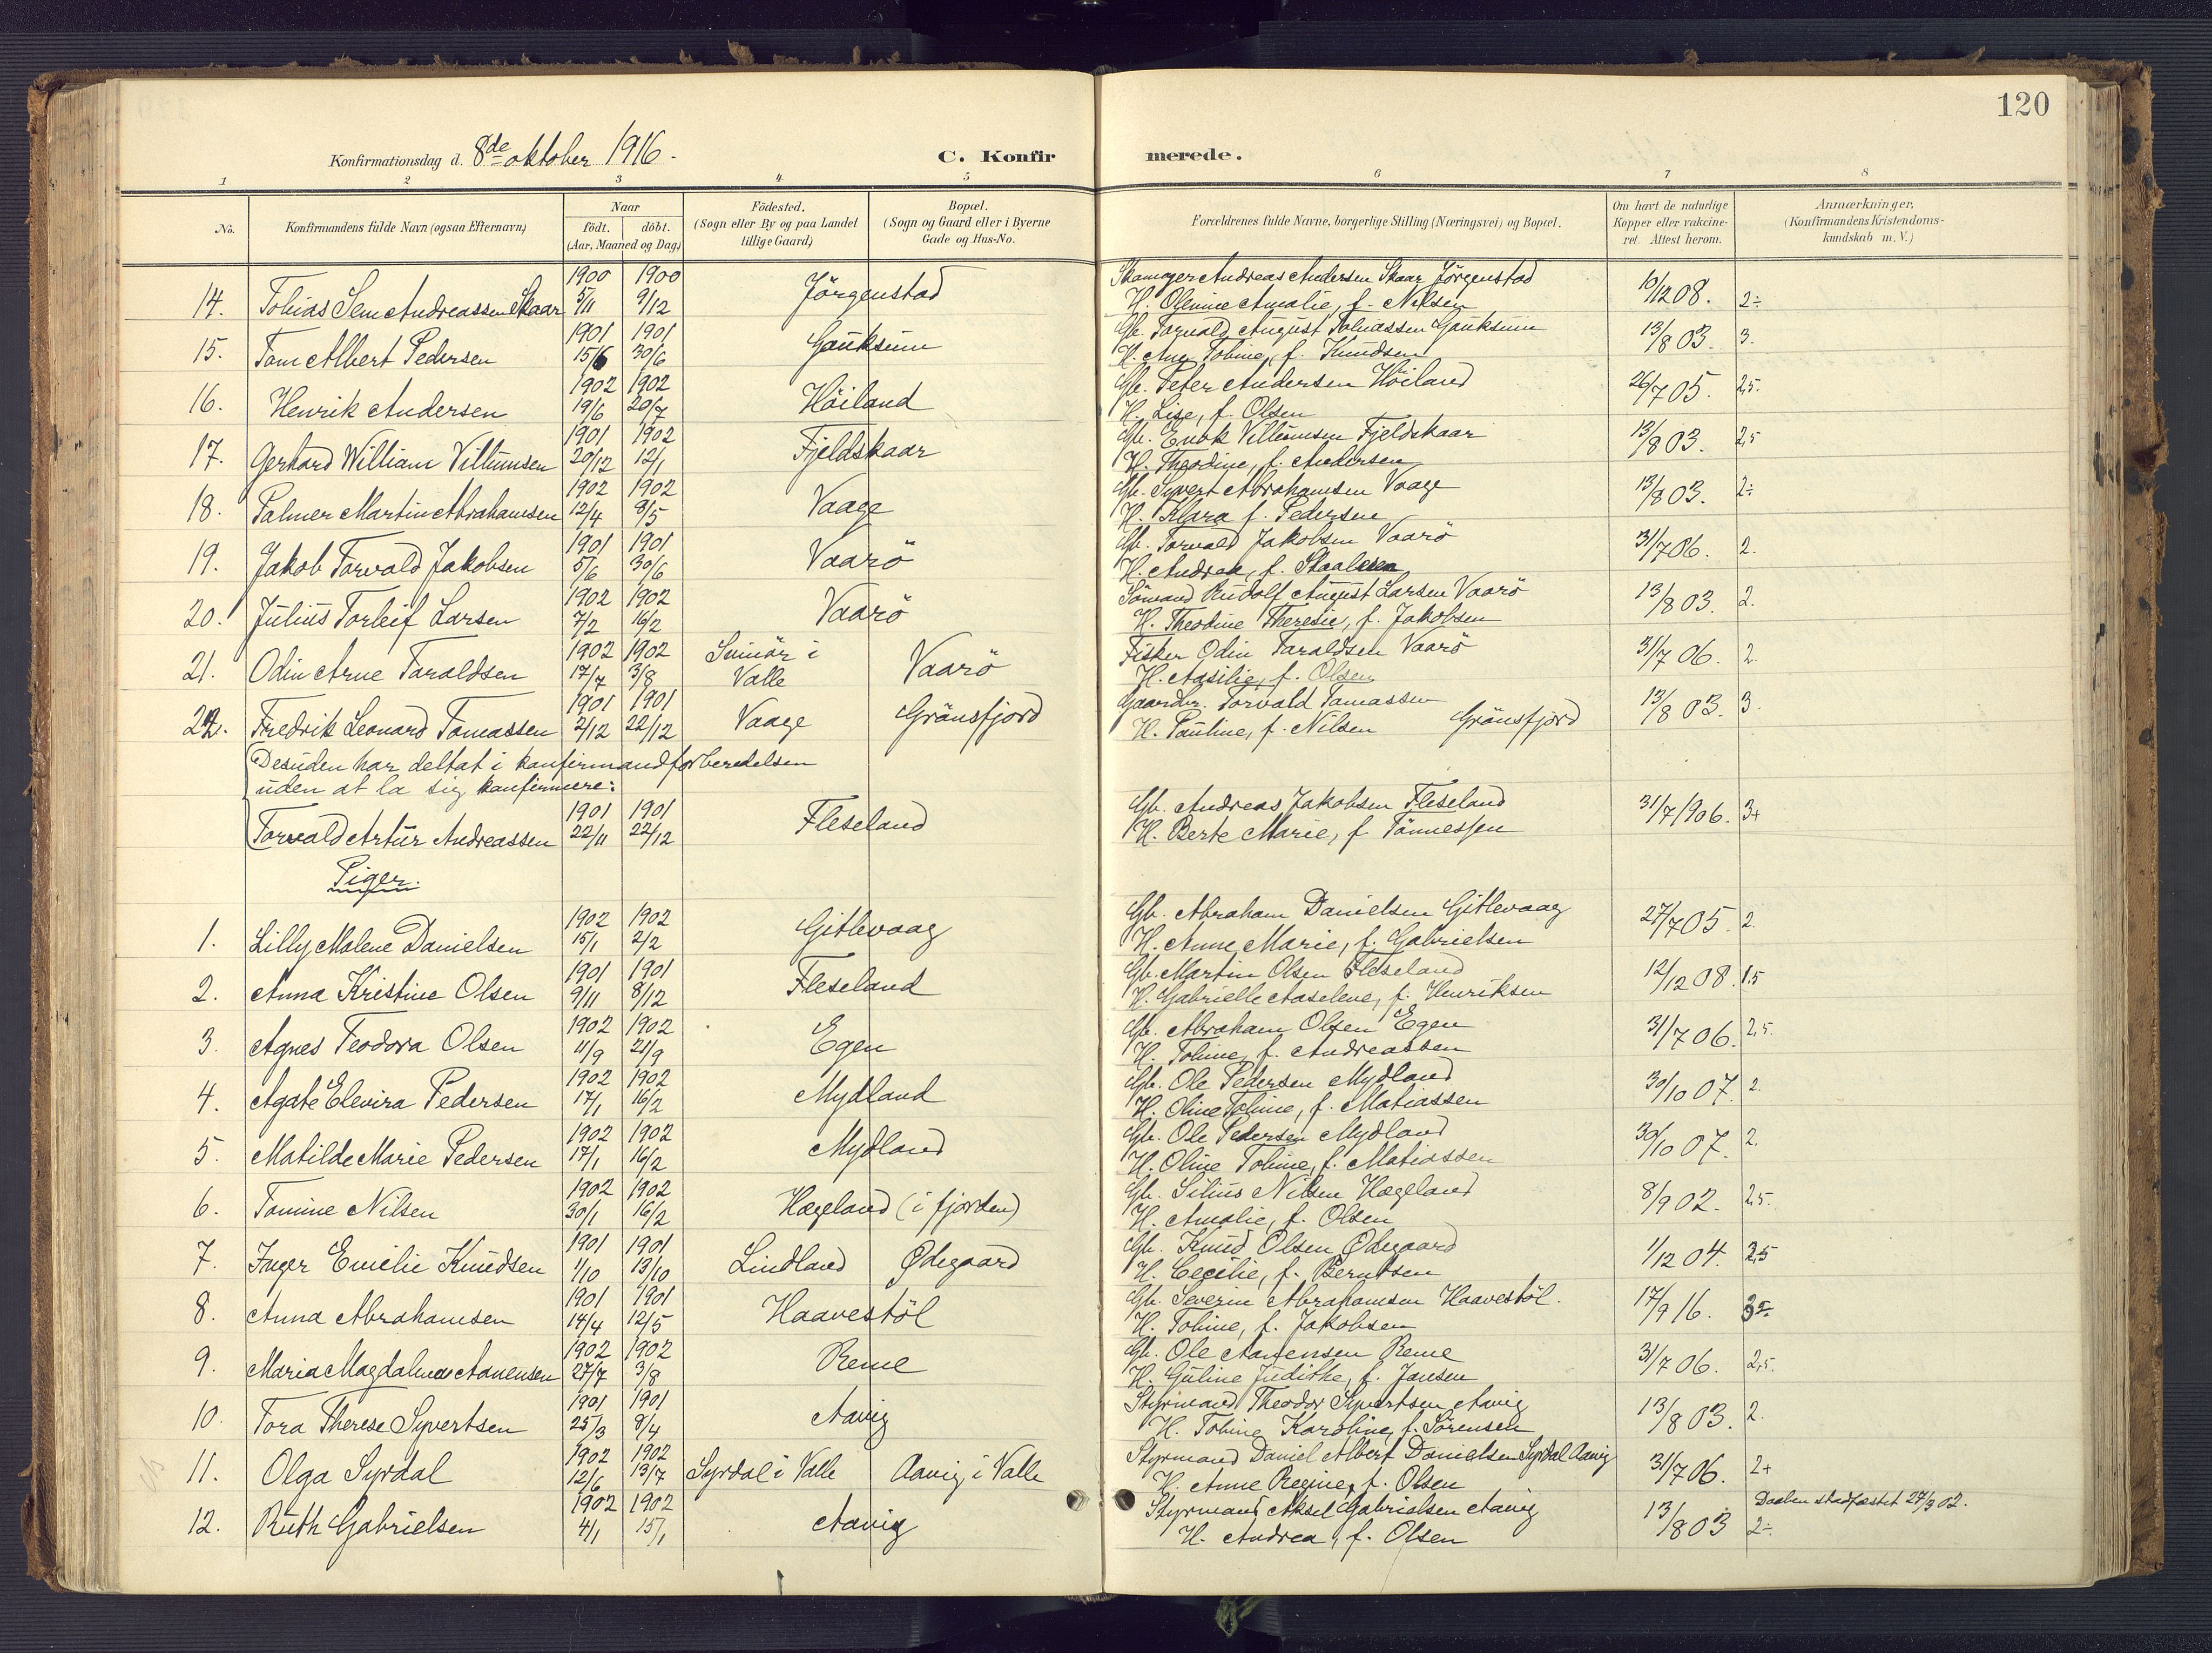 120
Konfirmationsdag d. 8de oktober 1916.
C. Konfirmerede.
1 2 3 4 5 6 7 8
No.
Konfirmandens fulde Navn (ogsaa Efternavn)
Naar
født. døbt.
(Aar, Maaned og Dag)
Fødested.
(Sogn eller By og paa Landet
tillige Gaard)
Bopæl.
(Sogn og Gaard eller i Byerne
Gade og Hus-No.
Forældrenes fulde Navne, borgerlige Stilling (Næringsvei) og Bopæl.
Om havt de naturlige
Kopper eller vakcine-
ret. Attest herom.
Anmærkninger,
(Konfirmandens Kristendoms-
kundskab m. V.)
1900 1900 Skomager Andreas Andersen Skaar Jörgenstad
14. Tobias Sem Andreassen Skaar 5/11 9/12 Jörgenstad H. Olenine Amalie, f. Nilsen 10/12 08. 2÷
1901 1901 Gb. Torvald August Tobiassen Gauksum
15. Tom Albert Pedersen 15/6 30/6 Gauksum H. Ane Tobine, f. Knudsen 13/8 03. 3.
1902 1902 Gb. Peter Andersen Höiland
16. Henrik Andersen 19/6 20/7 Höiland H. Lise, f. Olsen 26/7 05. 2,5.
1901 1902 Gb. Enok Villumsen Fjeldskaar
17. Gerhard William Villumsen 20/12 12/1 Fjeldskaar H. Theodine, f. Andersen 13/8 03. 2,5
1902 1902 Gb. Syvert Abrahamsen Vaage
18. Palmer Martin Abrahamsen 12/4 8/5 Vaage H. Klara f. Pedersen 13/8 03. 2÷
1901 1901 Gb. Torvald Jakobsen Vaarö
19. Jakob Torvald Jakobsen 5/6 30/6 Vaarö H. Andrea, f. 31/7 06. 2.
1902 1902 Sömand Rudolf August Larsen Vaarö
20. Julius Torleif Larsen 7/2 16/2 Vaarö H. Theodine Theresie, f. Jakobsen 13/8 03. 2.
1902 1902 Fisker Odin Taraldsen Vaarö
21. Odin Arne Taraldsen 17/7 3/8 Svinör i Valle Vaarö H. Aasilie, f. Olsen 31/7 06. 2.
1901 1901 Gaardbr. Torvald Tomassen
22. Fredrik Leonard Tomassen 2/12 22/12 Vaage Grönsfjord H. Pauline, f. Nilsen Grönsfjord 13/8 03. 3.
Desuden har deltat i konfirmandforberedelsen
uden at la sig konfirmere:
1901 1901 Gb. Andreas Jakobsen Fleseland
Torvald Artur Andreassen 22/11 22/12 Fleseland H. Berte Marie, f. Tönnessen 31/7 1906. 3+
Piger.
1902 1902 Gb. Abraham Danielsen Gitlevaag
1. Lilly Malene Danielsen 15/1 2/2 Gitlevaag H. Anne Marie, f. Gabrielsen 27/7 05. 2.
1901 1901 Gb. Martin Olsen Fleseland
2. Anna Kristine Olsen 9/11 8/12 Fleseland H. Gabrielle Aaselene, f. Henriksen 12/12 08. 1.5
1902 1902 Gb. Abraham Olsen Egen
3. Agnes Teodora Olsen 4/9 21/9 Egen H. Tobine, f. Andreassen 31/7 06. 2,5.
1902 1902 Gb. Ole Pedersen Mydland
4. Agate Elevira Pedersen 17/1 16/2 Mydland H. Oline Tobine, f. Matiassen 30/10 07. 2.
1902 1902 Gb. Ole Pedersen Mydland
5. Matilde Marie Pedersen 17/1 16/2 Mydland H. Oline Tobine, f. Matiassen 30/10 07. 2.
1902 1902 Gb. Silius Nilsen Hægeland
6. Tomine Nilsen 30/1 16/2 Hægeland (i fjorden) H. Amalie, f. Olsen 8/9 02. 2,5.
1901 1901 Gb. Knud Olsen Ødegaard
7. Inger Emilie Knudsen 1/10 13/10 Lindland Ødegaard H. Cecilie, f. Berntsen 1/12 04. 2,5
1901 1901 Gb. Severin Abrahamsen Haavestöl.
8. Anna Abrahamsen 14/4 12/5 Haavestöl H. Tobine, f. Jakobsen 17/9 16. 3÷
1902 1902 Gb. Ole Aanensen Reme
9. Maria Magdalena Aanensen 27/7 3/8 Reme H. Guline Judithe, f. Jansen 31/7 06. 2,5.
1901 1901 Styrmand Theodor Syvertsen Aavig
10. Tora Therese Syvertsen 25/3 8/4 Aavig H. Tobine Karoline, f. Sörensen 13/8 03. 2.
1902 1902 Styrmand Daniel Albert Danielsen Syrdal Aavig
11. Olga Syrdal 12/6 13/7 Syrdal i Valle Aavig i Valle H. Anne Regine, f. Olsen 31/7 06. 2+
1902 1902 Styrmand Aksel Gabrielsen Aavig Daaben stadfæstet 27/3 02.
12. Ruth Gabrielsen 4/1 15/1 Aavig H. Andrea, f. Olsen 13/8 03 2÷